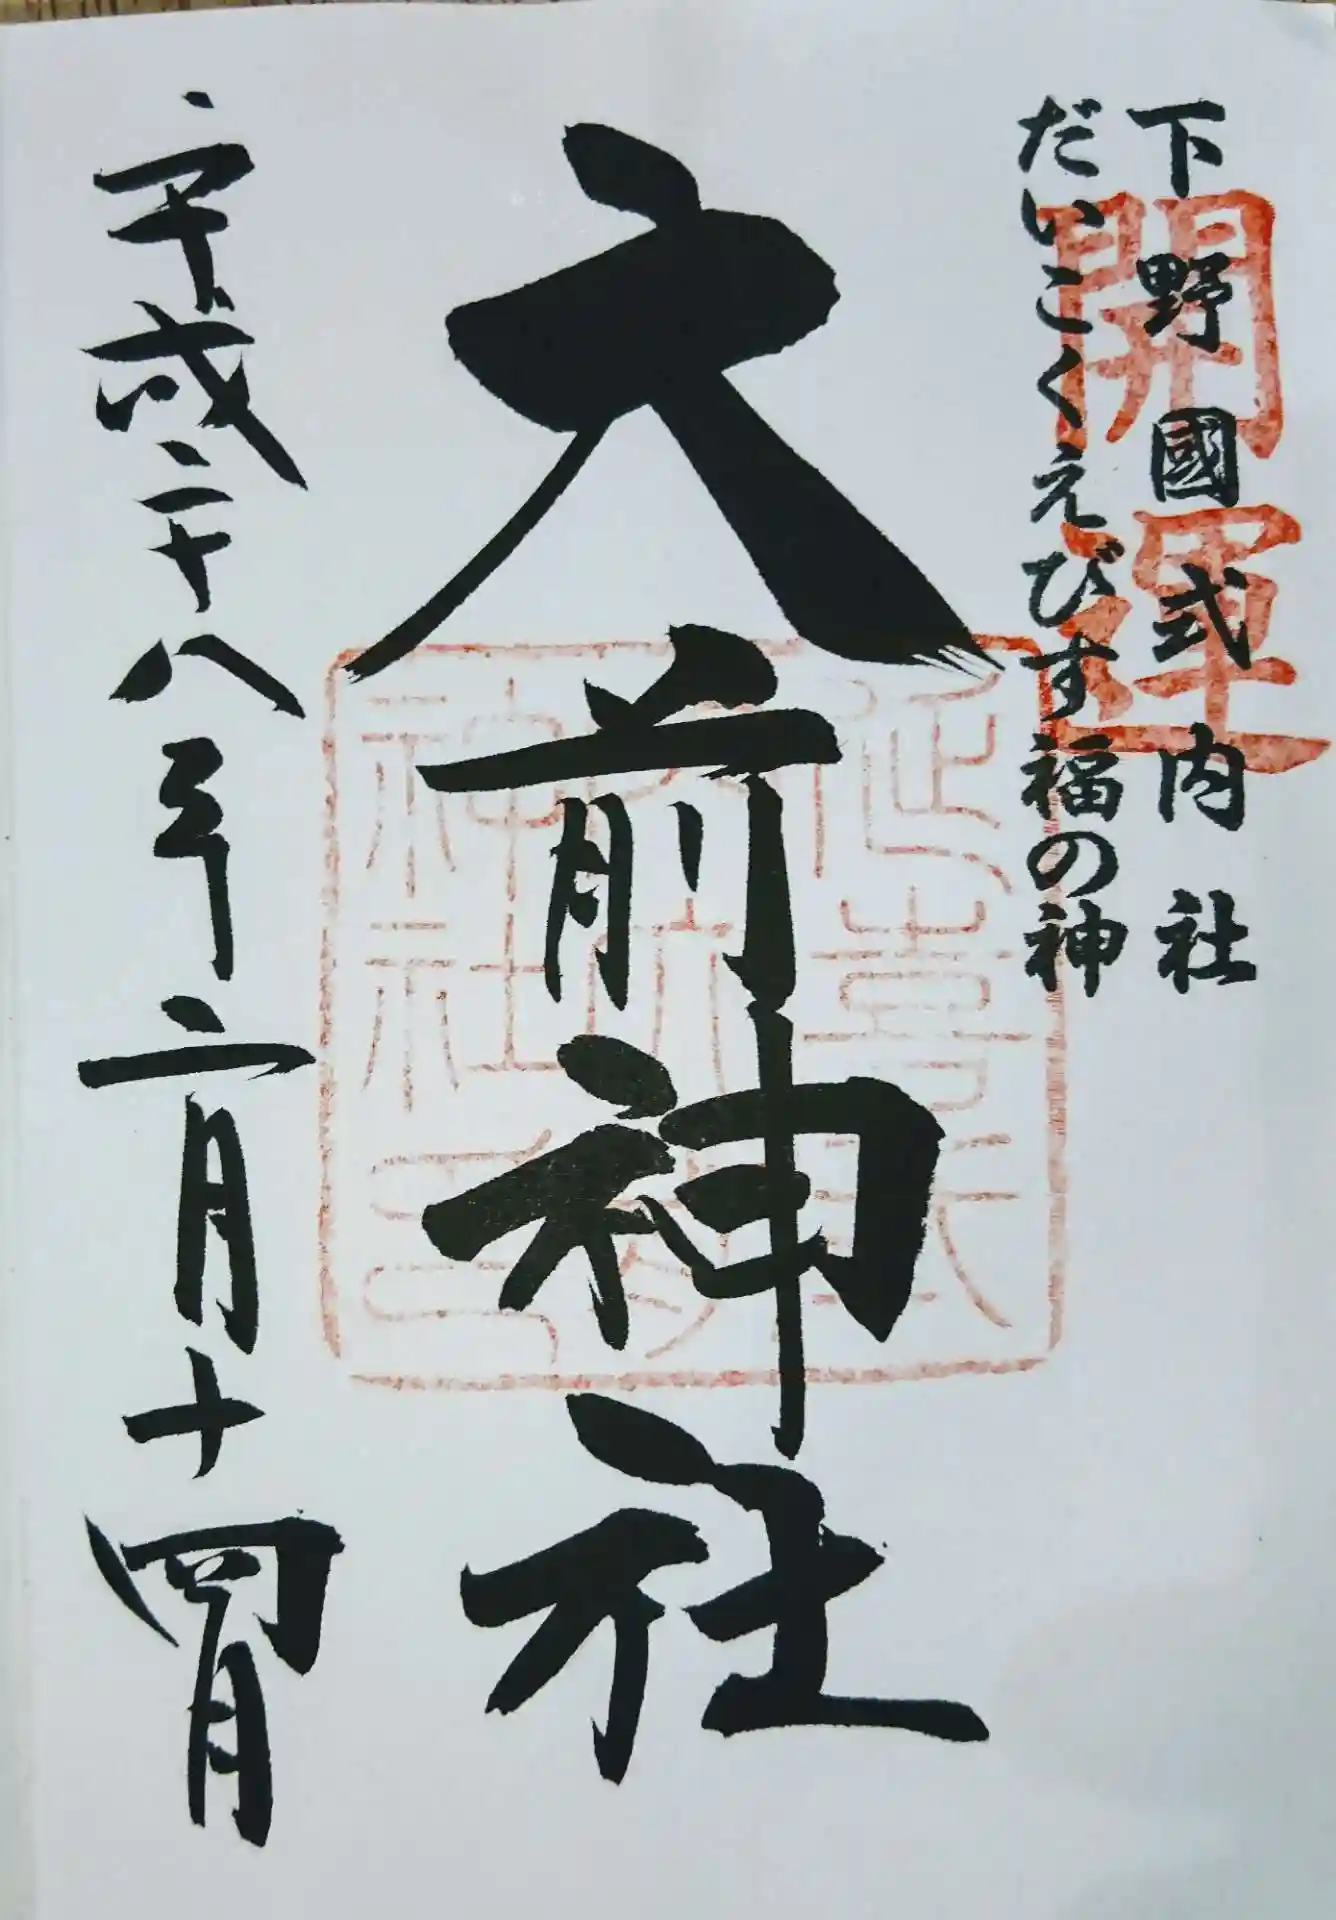 下野國式内社
だいこくえびす福の神
開運
大前神社
延喜式内大前神社
平成二十八年二月十四日